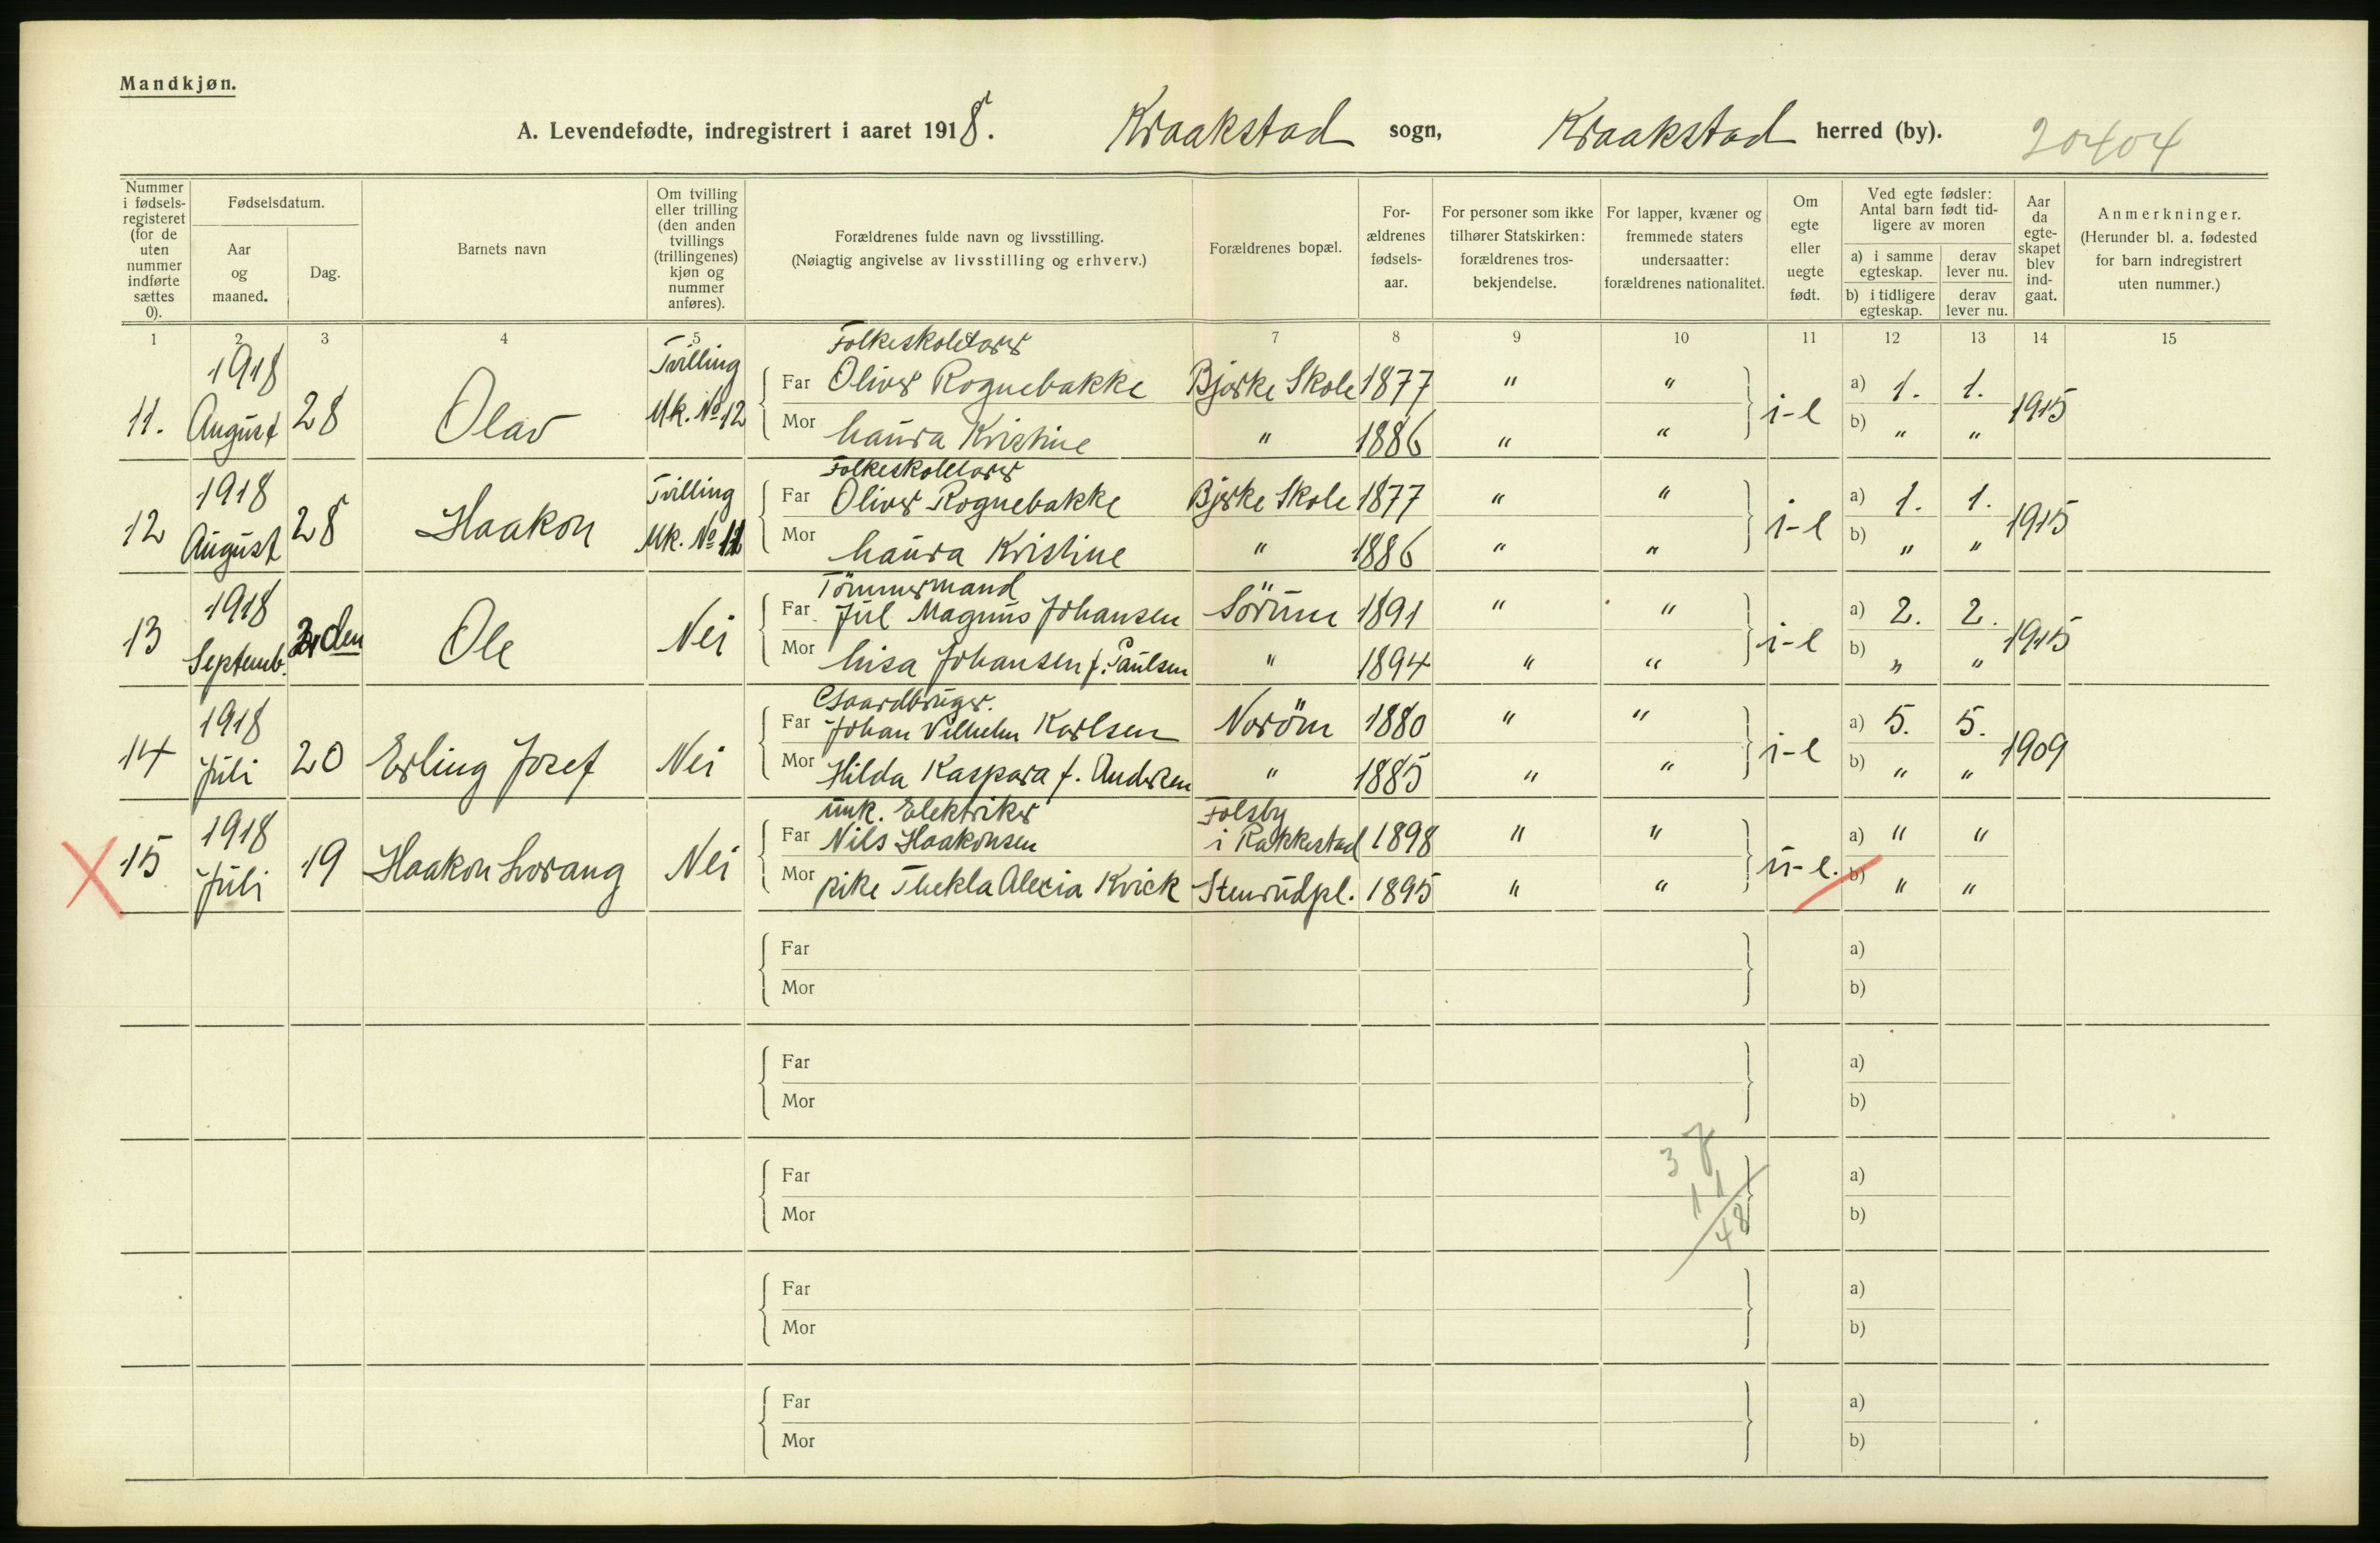 Mandkjøn.
A. Levendefødte, indregistrert i aaret 1918. Kraakstad sogn, Kraakstad herred (by). 20404
Nummer i fødsels-registeret (for de uten nummer indførte sættes 0).
Fødselsdatum.
Aar og maaned.
Dag.
Barnets navn
Om tvilling eller trilling (den anden tvillings (trillingenes) kjøn og nummer anføres).
Forældrenes fulde navn og livsstilling.
(Nøiagtig angivelse av livsstilling og erhverv.)
Forældrenes bopæl.
For-ældrenes fødsels-aar.
For personer som ikke tilhører Statskirken: forældrenes tros-bekjendelse.
For lapper, kvæner og fremmede staters undersaatter: forældrenes nationalitet.
Om egte eller uegte født.
Ved egte fødsler: Antal barn født tid-ligere av moren
a) i samme egteskap. derav lever nu.
b) i tidligere egteskap. derav lever nu.
Aar da egte-skapet blev ind-gaat.
Anmerkninger.
(Herunder bl. a. fødested for barn indregistrert uten nummer.)
1 2 3 4 5 7 8 9 10 11 12 13 14 15
Folkeskolelærer
11. 1918 August 28 Olav Tvilling Mk. No 12 Far Oliver Rognebakke Bjerke Skole 1877 " " i-l a) 1. 1. 1915
Mor Laura Kristine " 1886 " " b) " "
Folkeskolelærer
12 1918 August 28 Haakon Tvilling Mk. No 11 Far Oliver Rognebakke Bjerke Skole 1877 " " i-l a) 1. 1. 1915
Mor Laura Kristine " 1886 " " b) " "
Tömmermand
13 1918 Septemb. Ole Nei Far Jul Magnus Johansen Sörum 1891 " " i-l a) 2. 2. 1915
Mor Lisa Johansen f. Paulsen " 1894 " " b) " "
Gaardbruger.
14 1918 Juli 20 Erling Josef Nei Far Johan Vilhelm Karlsen Noröm 1880 " " i-l a) 5. 5. 1909
Mor Hilda Kaspara f. Andersen " 1885 " " b) " "
unk. Elektriker Folsby
15 1918 Juli 19 Haakon Lorang Nei Far Nils Haakonsen i Rakkestad 1898 " " u-l. a) " "
Mor pike Thekla Alexia Kvick Stenrudpl. 1895 " " b) " "
Far a)
Mor b)
Far a)
Mor b)
37
Far a)
11
Mor b)
48
Far a)
Mor b)
Far a)
Mor b)